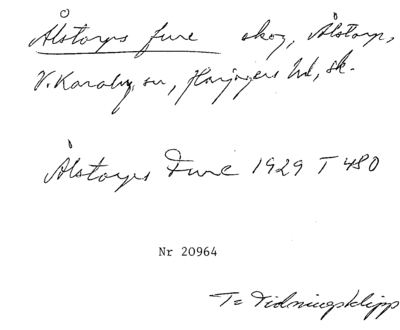 Ålstorps fure skog, Ålstorp,
V. Karaby sn, Harjagers hd, sk.
Ålstorps Fure 1929 T 480
Nr 20964
T = Tidningsklipp